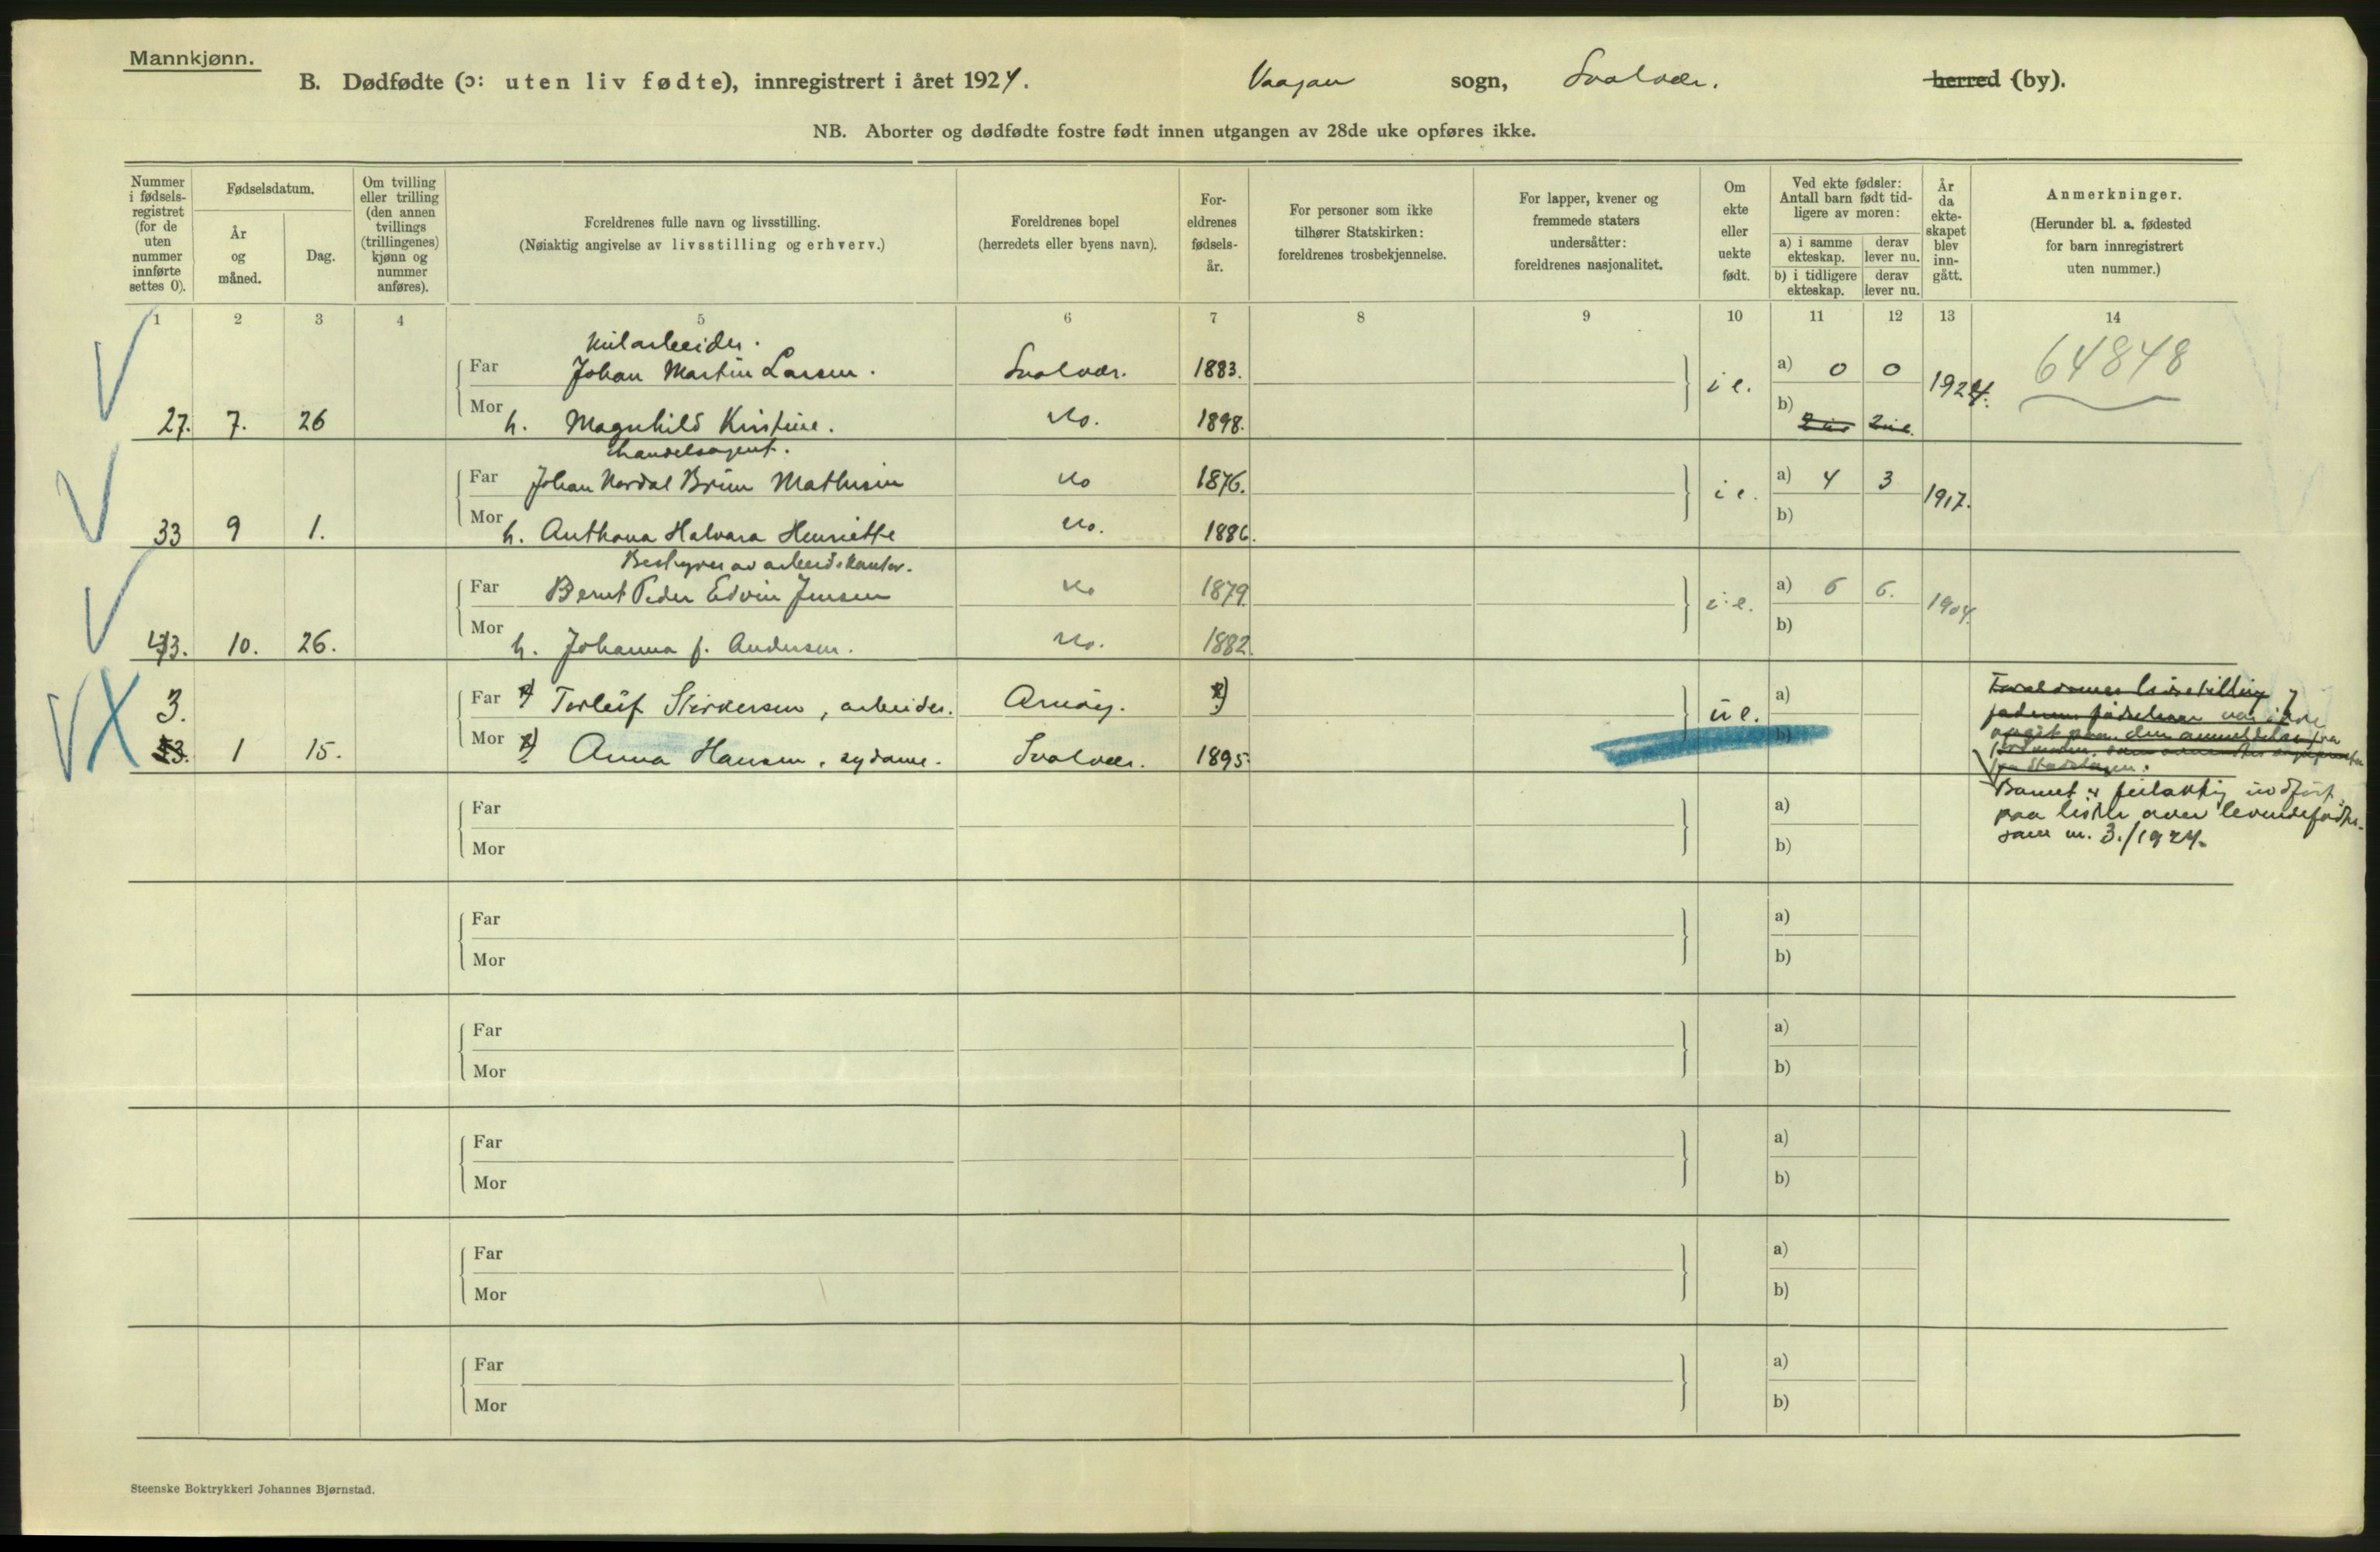 Mannkjønn.
B. Dødfødte (ɔ: uten liv fødte), innregistrert i året 1924. Vaagan sogn, Svolvær. herred (by).
NB. Aborter og dødfødte fostre født innen utgangen av 28de uke opføres ikke.
Nummer i fødsels-registret (for de uten nummer innførte settes 0).
Fødselsdatum.
År og måned.
Dag.
Om tvilling eller trilling (den annen tvillings (trillingenes) kjønn og nummer anføres).
Foreldrenes fulle navn og livsstilling.
(Nøiaktig angivelse av livsstilling og erhverv.)
Foreldrenes bopel
(herredets eller byens navn).
For-eldrenes fødsels-år.
For personer som ikke
tilhører Statskirken:
foreldrenes trosbekjennelse.
For lapper, kvener og
fremmede staters
undersåtter:
foreldrenes nasjonalitet.
Om ekte eller uekte født.
Ved ekte fødsler:
Antall barn født tid-
ligere av moren:
a) i samme ekteskap.
derav lever nu.
b) i tidligere ekteskap.
derav lever nu.
År da ekte-skapet blev inn-gått.
Anmerkninger.
(Herunder bl. a. fødested
for barn innregistrert
uten nummer.)
1 2 3 4 5 6 7 8 9 10 11 12 13 14
Far Johan Martin Larsen. Svolvær. 1883. i e. a) 0 0 1924. 64848
27. 7. 26 Mor h. Magnhild Kristine. do. 1898. b)
Handelsagent.
Far Johan Nordal Brun Mathisen do 1876. i e. a) 4 3 1917.
33 9 1. Mor h. Anthona Halvara Henriette do. 1886. b)
Bestyrer av arbeidskontor.
Far Bernt Peder Edvin Jensen do 1879 i e. a) 6 6. 1904.
43. 10. 26. Mor h. Johanna f. Andersen. do. 1882. b)
3. Far Torleif , arbeider. u e. a)
1 15. Mor Anna Hansen, sydame. Svolvær. 1895. b)
Barnet er feilaktig indført
paa liste over levendefødte
som nr. 3./1924.
Far a)
Mor b)
Far a)
Mor b)
Far a)
Mor b)
Far a)
Mor b)
Far a)
Mor b)
Far a)
Mor b)
Steenske Boktrykkeri Johannes Bjørnstad.